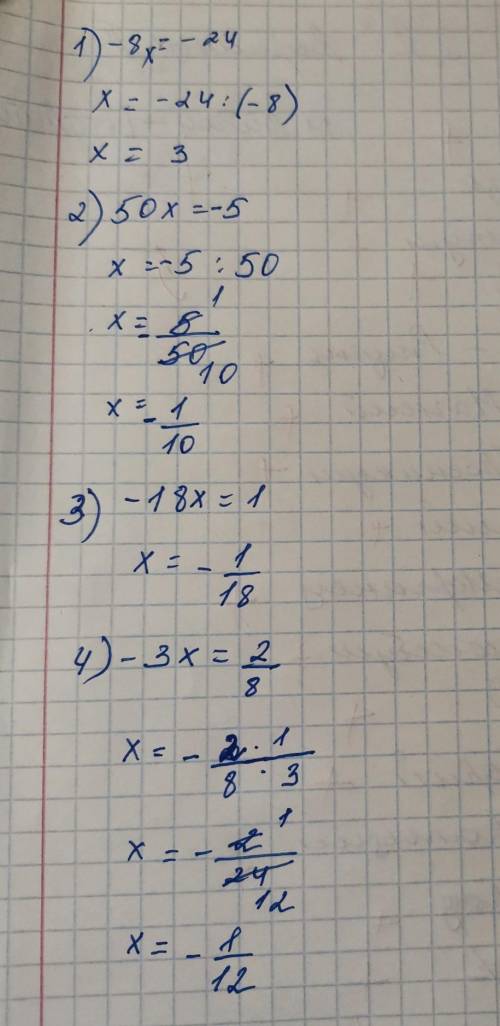 1) -8x = -24
x = -24 : (-8)
x = 3
2) 50x = -5
x = -5 : 50
x = - 5/50 1 10
x = - 1/10
3) -18x = 1
x = - 1/18
4) -3x = 2/8
x = - 2 · 1 / 8 · 3
x = - 2/24 1 12
x = - 1/12